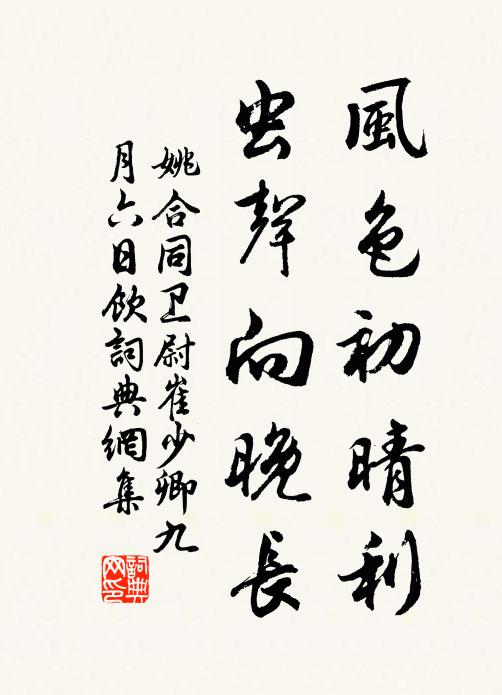 風色初晴利
虫聲向晚長
姚合同卫尉崔少卿九
月六日飲詞典網集
詞典
网印